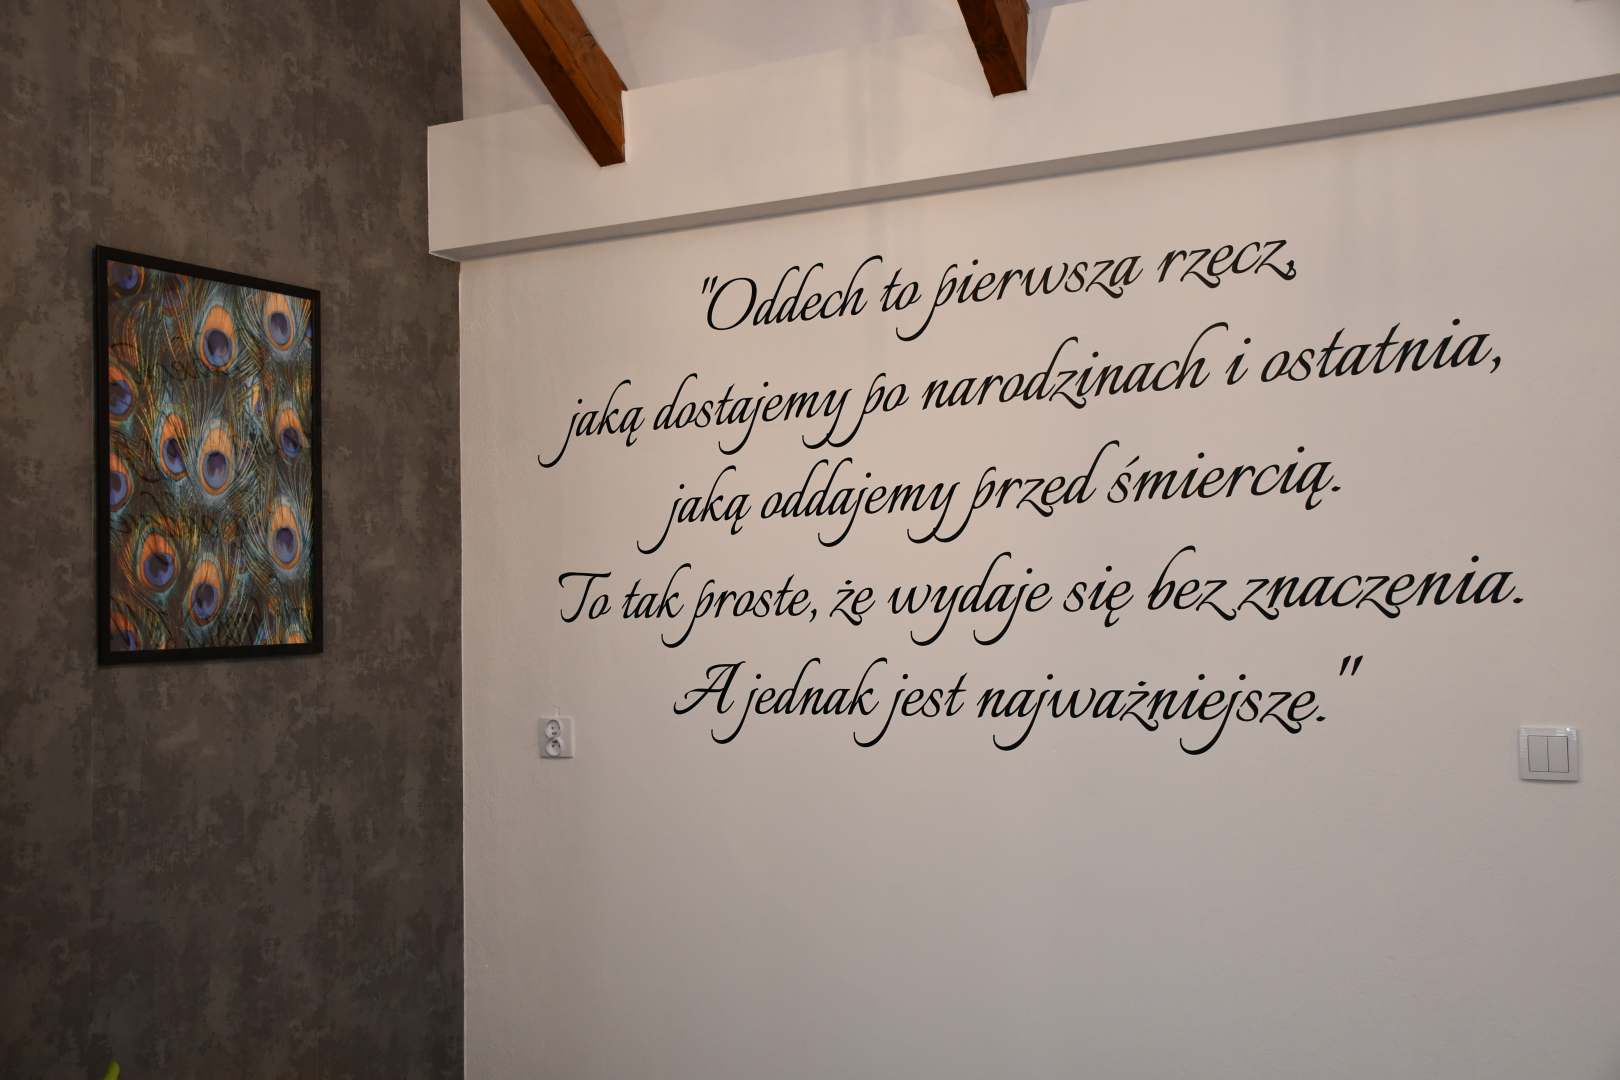 "Oddech to pierwsza rzecz,
jaką dostajemy po narodzinach i ostatnia,
jaką oddajemy przed śmiercią.
To tak proste, że wydaje się bez znaczenia.
A jednak jest najważniejsze."